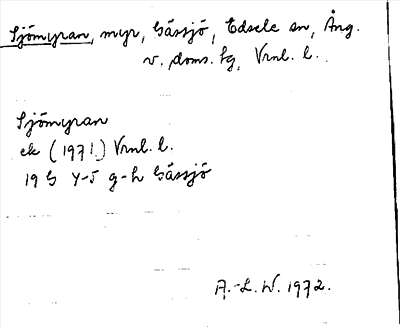 Sjömyran, myr, Gässjö, Edsele sn, Ång.
v. doms. fg, Vrnl. l.
Sjömyran
ek (1971) Vrnl. l.
19 G 4-5 g-h Gässjö
A.-L. W. 1972.